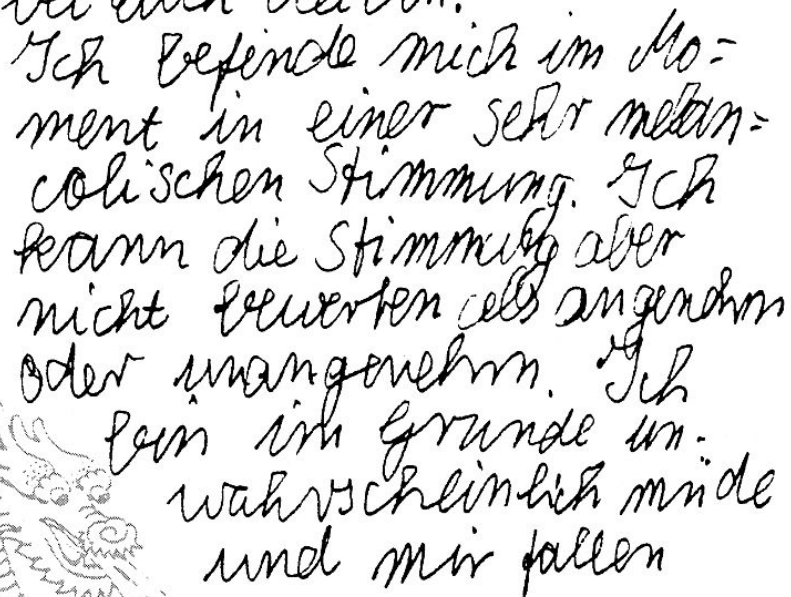 Ich befinde mich im Mo=
ment in einer sehr melan=
colischen Stimmung. Ich
kann die Stimmung aber
nicht bewerten als angenehm
oder unangenehm. Ich
bin im Grunde un-
wahrscheinlich müde
und mir fallen